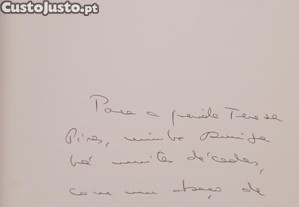 CustoJusto.pt
Para a querida Teresa
Pires, minha Amiga
há muitas décadas,
com um abraço de